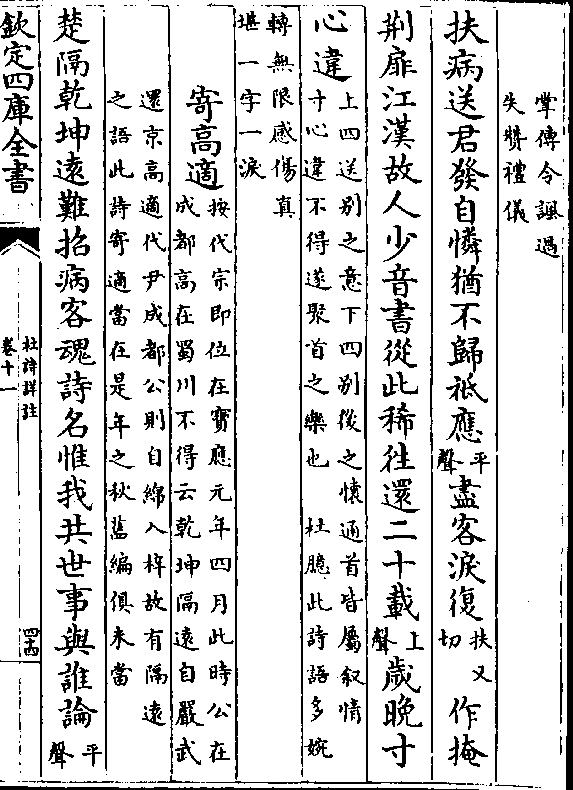 掌傳令諷過
失贊禮儀
扶病送君發自憐猶不歸祗應平聲盡客淚復扶又切作掩
荆扉江漢故人少音書從此稀徃還二十載上聲歲晚寸
心違上四送别之意下四别後之懷通首皆屬叙情
寸心違不得遂聚首之樂也 杜臆此詩語多婉
轉無限感傷真
堪一字一淚
寄高適按代宗即位在寶應元年四月此時公在
成都高在蜀川不得云乾坤隔遠自嚴武
還京高適代尹成都公則自綿入梓故有隔遠
之語此詩寄適當在是年之秋舊編俱未當
楚隔乾坤遠難招病客魂詩名惟我共世事與誰論平聲
欽定四庫全書
杜詩詳註
卷十一
四十四